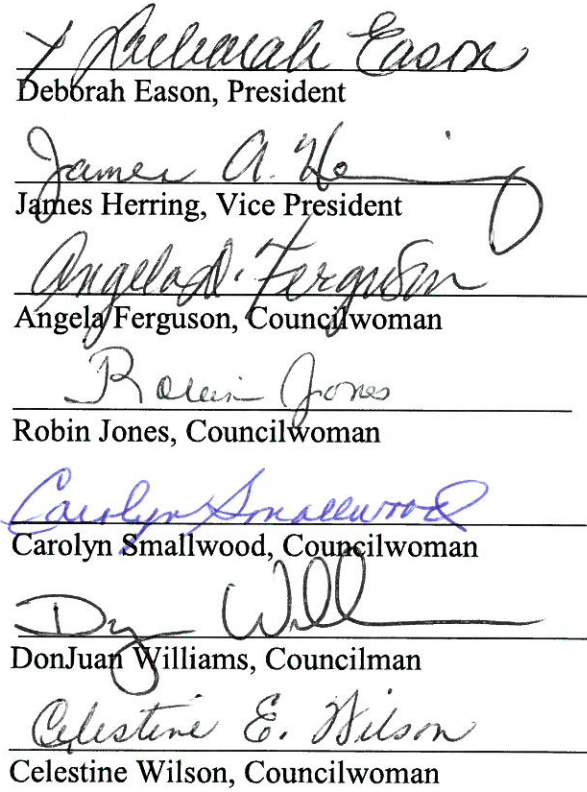 x Deborah Eason
Deborah Eason, President
James A. Herring
James Herring, Vice President
Angela D. Ferguson
Angela Ferguson, Councilwoman
Robin Jones
Robin Jones, Councilwoman
Carolyn Smallwood
Carolyn Smallwood, Councilwoman
Williams
DonJuan Williams, Councilman
Celestine E. Wilson
Celestine Wilson, Councilwoman